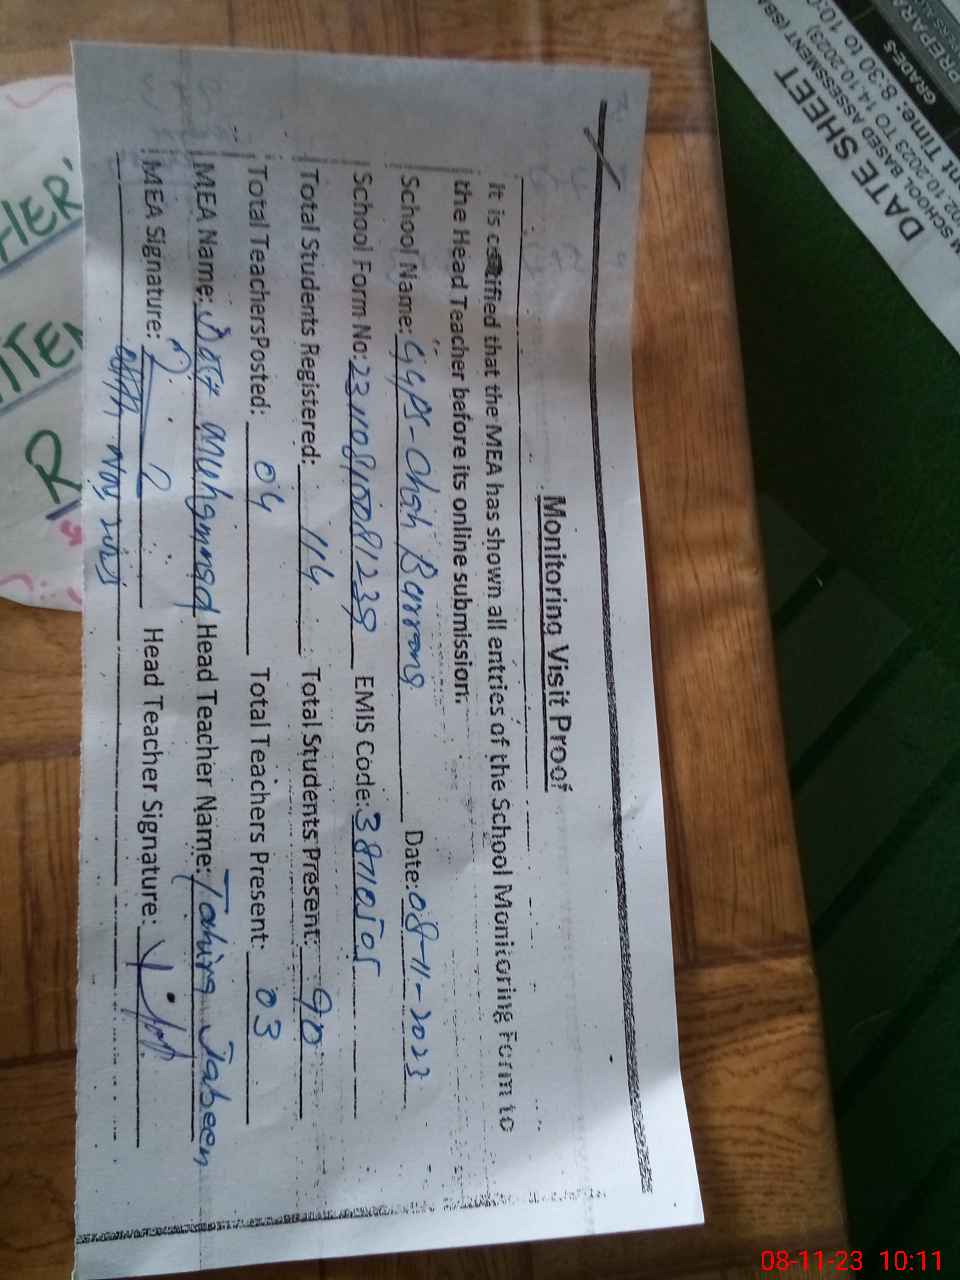 Monitoring Visit Proof
It is certified that the MEA has shown all entries of the School Monitoring Form to
the Head Teacher before its online submission.
School Name: GGPS - Chah Barrang Date: 08-11-2023
School Form No: EMIS Code: 38710505
Total Students Registered: 114 Total Students Present: 90
Total TeachersPosted: 04 Total Teachers Present: 03
MEA Name: Muhammad Head Teacher Name: Tahira Jabeen
MEA Signature: Head Teacher Signature:
08th Nov 2023
DATE SHEET
SCHOOL BASED ASSESSMENT (SBA
02.10.2023 TO 14.10.2023)
Time: 8:30 to 10:0
GRADES
PREPARA
HER'
TTEN
R
08-11-23 10:11